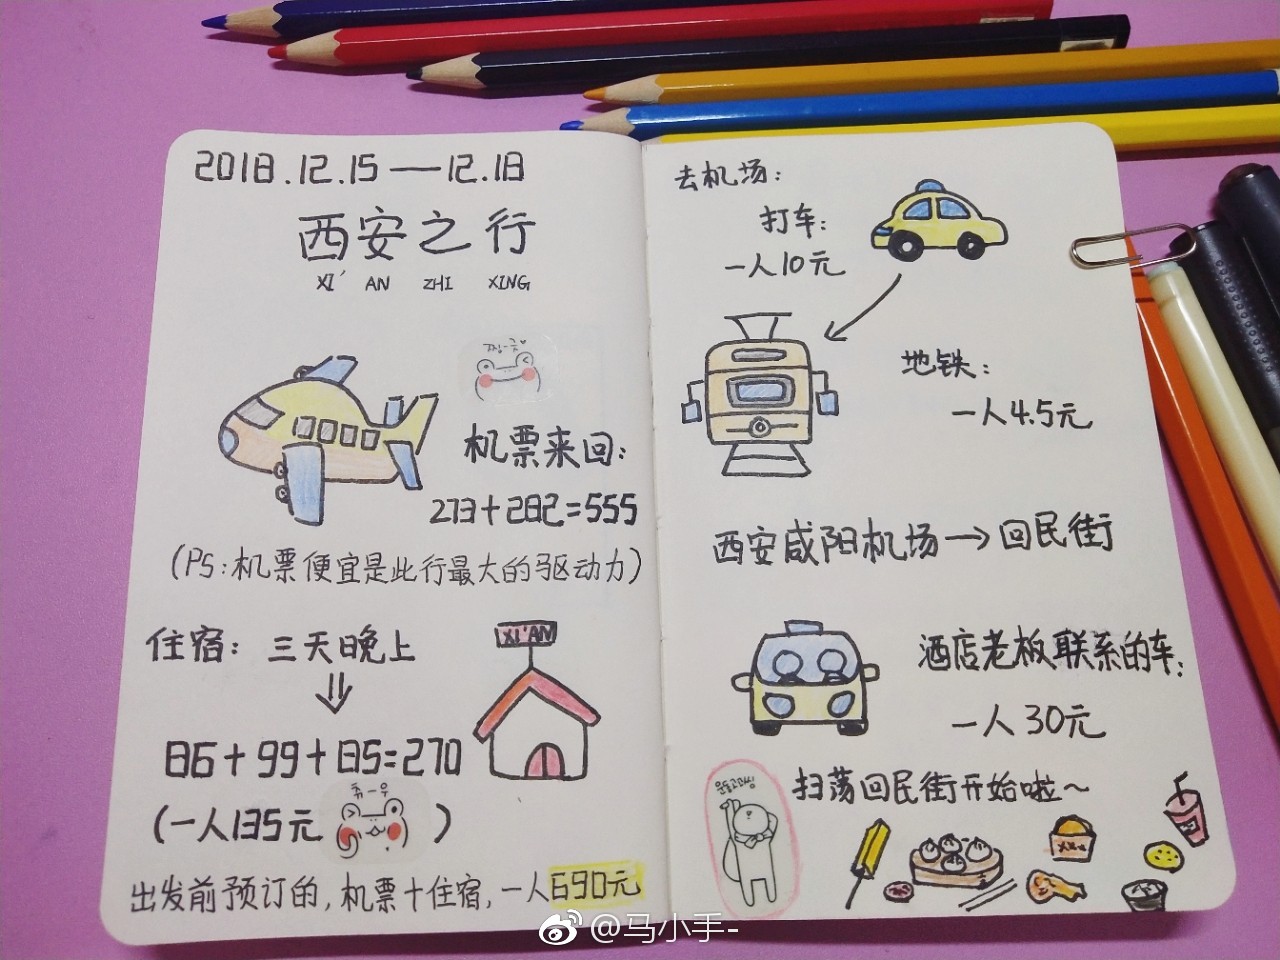 2018.12.15——12.18
西安之行
XI' AN ZHI XING
机票来回：
273+282=555
（PS：机票便宜是此行最大的驱动力）
住宿：三天晚上
XI'AN
86+99+85=270
（一人135元 ）
出发前预订的，机票+住宿，一人690元
去机场：
打车：
一人10元
地铁：
一人4.5元
西安咸阳机场→回民街
酒店老板联系的车：
一人30元
扫荡回民街开始啦~
@马小手-